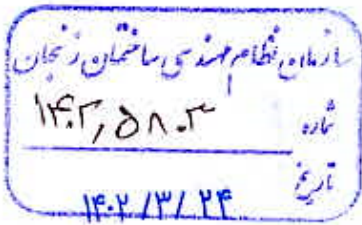 سازمان نظام مهندسی ساختمان زنجان
شماره ۱۴۰۲,۵۸۰۳
تاریخ ۱۴۰۲/۳/۲۴